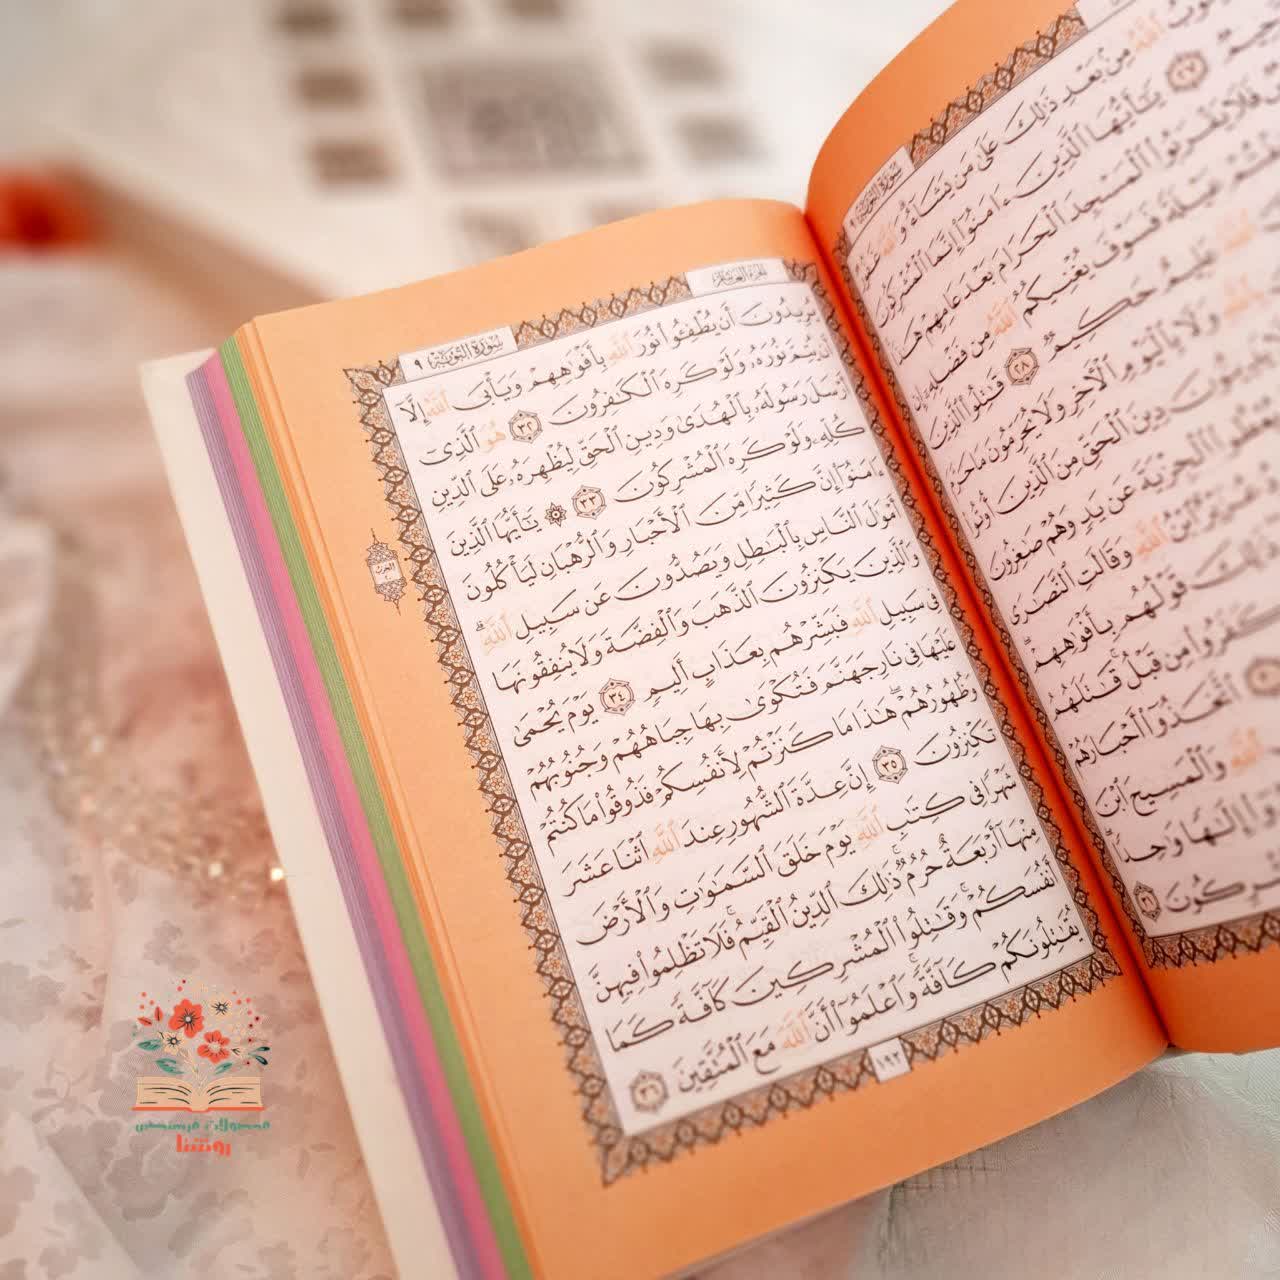 سُورَةُ التَّوْبَةِ ٩
ٱللَّهُ مِنۢ بَعْدِ ذَٰلِكَ عَلَىٰ مَن يَشَآءُ وَٱللَّهُ
٢٧ يَـٰٓأَيُّهَا ٱلَّذِينَ ءَامَنُوٓا۟ إِنَّمَا ٱلْمُشْرِكُونَ
فَلَا يَقْرَبُوا۟ ٱلْمَسْجِدَ ٱلْحَرَامَ بَعْدَ عَامِهِمْ هَـٰ
عَيْلَةً فَسَوْفَ يُغْنِيكُمُ ٱللَّهُ مِن فَضْلِهِۦٓ إِن
ٱللَّهَ عَلِيمٌ حَكِيمٌ ٢٨ قَـٰتِلُوا۟ ٱلَّذِينَ
بِٱللَّهِ وَلَا بِٱلْيَوْمِ ٱلْـَٔاخِرِ وَلَا يُحَرِّمُونَ مَا حَرَّمَ
يَدِينُونَ دِينَ ٱلْحَقِّ مِنَ ٱلَّذِينَ أُوتُوا۟
ٱلْجِزْيَةَ عَن يَدٍ وَهُمْ صَـٰغِرُونَ
عُزَيْرٌ ٱبْنُ ٱللَّهِ وَقَالَتِ ٱلنَّصَـٰرَى
ذَٰلِكَ قَوْلُهُم بِأَفْوَٰهِهِمْ
كَفَرُوا۟ مِن قَبْلُ قَـٰتَلَهُمُ
ٱتَّخَذُوٓا۟ أَحْبَارَهُمْ
ٱللَّهِ وَٱلْمَسِيحَ ٱبْنَ
إِلَـٰهًا وَٰحِدًا
يُشْرِكُونَ ٣١
الجُزْءُ العَاشِرُ
سُورَةُ التَّوْبَةِ ٩
يُرِيدُونَ أَن يُطْفِـُٔوا۟ نُورَ ٱللَّهِ بِأَفْوَٰهِهِمْ وَيَأْبَى ٱللَّهُ إِلَّآ
أَن يُتِمَّ نُورَهُۥ وَلَوْ كَرِهَ ٱلْكَـٰفِرُونَ ٣٢ هُوَ ٱلَّذِىٓ
أَرْسَلَ رَسُولَهُۥ بِٱلْهُدَىٰ وَدِينِ ٱلْحَقِّ لِيُظْهِرَهُۥ عَلَى ٱلدِّينِ
كُلِّهِۦ وَلَوْ كَرِهَ ٱلْمُشْرِكُونَ ٣٣ ۞ يَـٰٓأَيُّهَا ٱلَّذِينَ
ءَامَنُوٓا۟ إِنَّ كَثِيرًا مِّنَ ٱلْأَحْبَارِ وَٱلرُّهْبَانِ لَيَأْكُلُونَ
أَمْوَٰلَ ٱلنَّاسِ بِٱلْبَـٰطِلِ وَيَصُدُّونَ عَن سَبِيلِ ٱللَّهِ ۗ
وَٱلَّذِينَ يَكْنِزُونَ ٱلذَّهَبَ وَٱلْفِضَّةَ وَلَا يُنفِقُونَهَا
فِى سَبِيلِ ٱللَّهِ فَبَشِّرْهُم بِعَذَابٍ أَلِيمٍ ٣٤ يَوْمَ يُحْمَىٰ
عَلَيْهَا فِى نَارِ جَهَنَّمَ فَتُكْوَىٰ بِهَا جِبَاهُهُمْ وَجُنُوبُهُمْ
وَظُهُورُهُمْ ۖ هَـٰذَا مَا كَنَزْتُمْ لِأَنفُسِكُمْ فَذُوقُوا۟ مَا كُنتُمْ
تَكْنِزُونَ ٣٥ إِنَّ عِدَّةَ ٱلشُّهُورِ عِندَ ٱللَّهِ ٱثْنَا عَشَرَ
شَهْرًا فِى كِتَـٰبِ ٱللَّهِ يَوْمَ خَلَقَ ٱلسَّمَـٰوَٰتِ وَٱلْأَرْضَ
مِنْهَآ أَرْبَعَةٌ حُرُمٌ ۚ ذَٰلِكَ ٱلدِّينُ ٱلْقَيِّمُ ۚ فَلَا تَظْلِمُوا۟ فِيهِنَّ
أَنفُسَكُمْ ۚ وَقَـٰتِلُوا۟ ٱلْمُشْرِكِينَ كَآفَّةً كَمَا
يُقَـٰتِلُونَكُمْ كَآفَّةً ۚ وَٱعْلَمُوٓا۟ أَنَّ ٱللَّهَ مَعَ ٱلْمُتَّقِينَ ٣٦
١٩٢
محصولات فرهنگی
روشنا